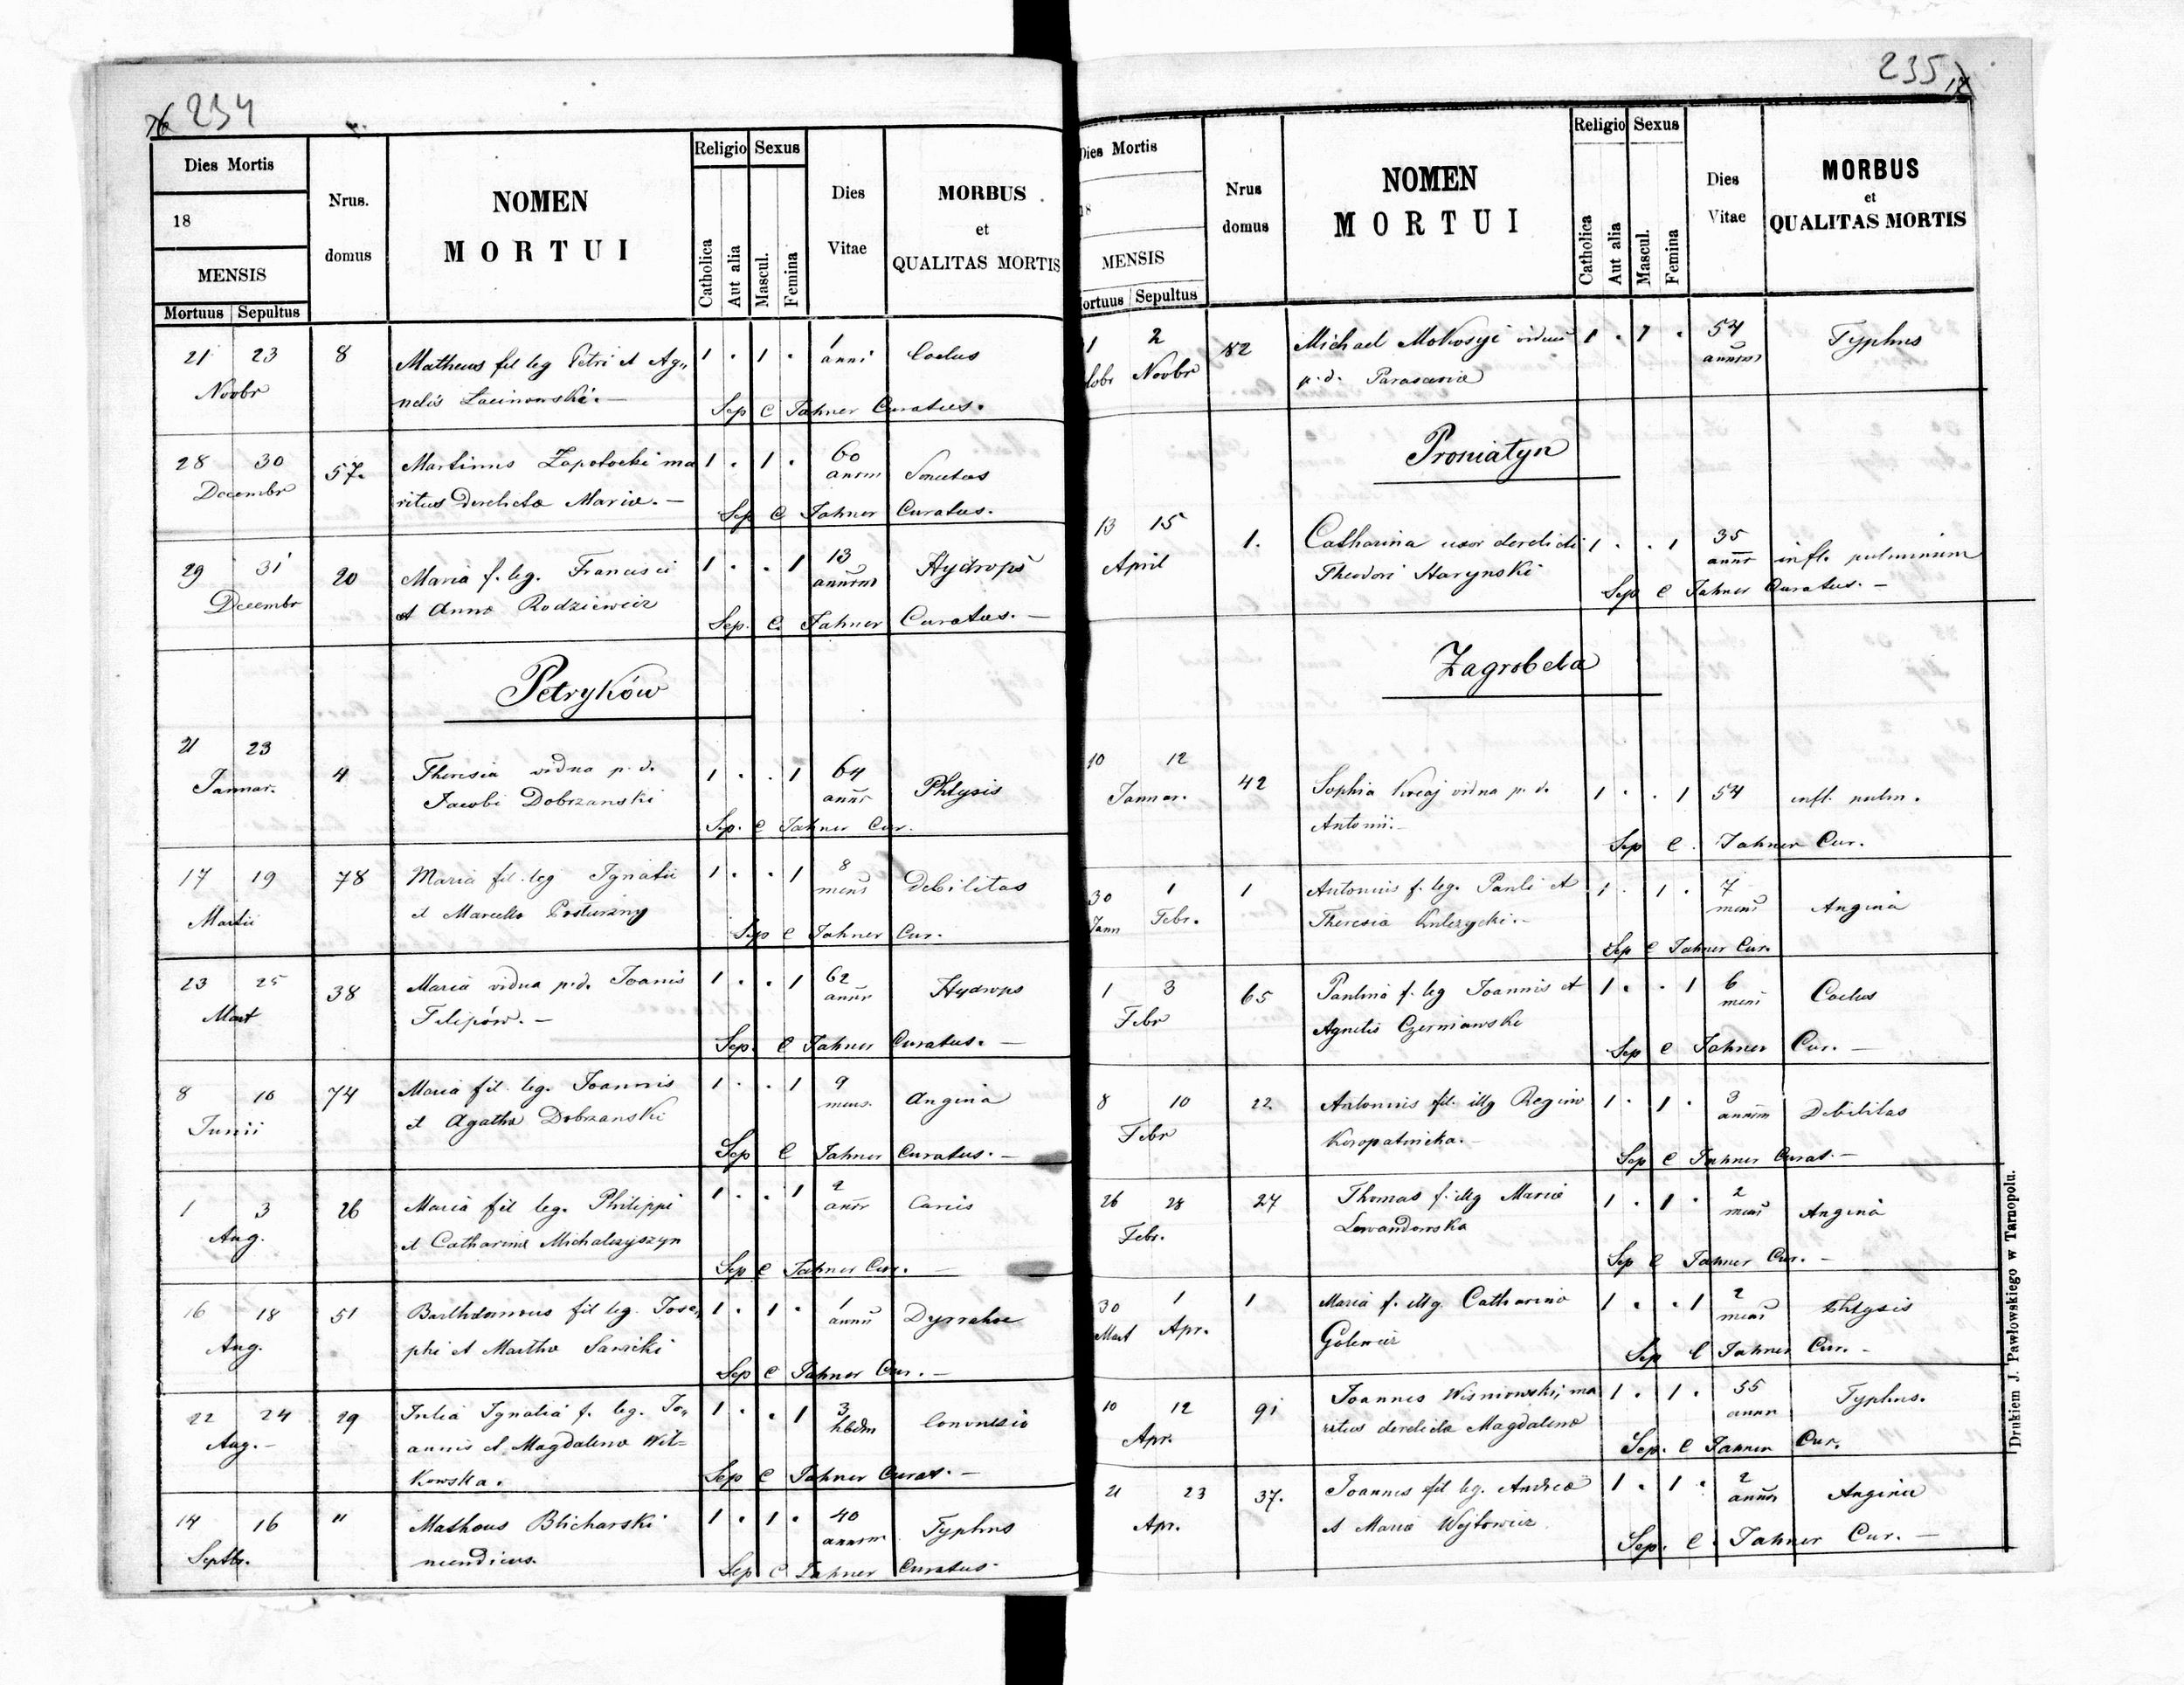 76 234
Dies Mortis
18
MENSIS
Mortuus Sepultus
Nrus. domus
NOMEN
MORTUI
Religio Sexus
Catholica
Aut alia
Mascul.
Femina
Dies Vitae
MORBUS
et
QUALITAS MORTIS
21 23 8 Matheus fil leg Petri et Ag„ 1 . 1 . 1 anni
Novbr netis
Sep C Jahner Curatus.
28 30 57. Martinus Zapotocki ma 1 . 1 . 60 annm
Decembr ritus derelicta Mariae. —
Sep C Jahner Curatus.
29 31 20 Maria f. leg. Francisci 1 . . 1 13 annorm Hydrops
Decembr et Annae Rodziewicz
Sep. C. Jahner Curatus. —
Petryków
21 23 4 Theresia vidua p. d. 1 . . 1 64 annr Phtysis
Januar. Jacobi Dobrzanski
Sep. C Jahner Cur.
17 19 78 Maria fil. leg Ignatii 1 . . 1 8 mens Debilitas
Martii et Marcella
Sep C Jahner Cur.
23 25 38 Maria vidua p. d. Joanis 1 . . 1 62 annr Hydrops
Mart Filipów. —
Sep. C Jahner Curatus. —
8 10 74 Maria fil. leg. Joannis 1 . . 1 9 mens. Angina
Junii et Agatha Dobrzanski
Sep C Jahner Curatus. —
1 3 26 Maria fil leg. Philippi 1 . . 1 2 annr
Aug. et Catharina Michalczyszyn
Sep C Jahner Cur. —
16 18 51 Bartholomeus fil leg. Jose„ 1 . 1 . 1 anni
Aug. phi et Martha Sawicki
Sep C Jahner Cur. —
22 24 29 Julia Ignatia f. leg. Jo„ 1 . . 1 3 hbdm
Aug. — annis et Magdalena Wit=
kowska.
Sep C Jahner Curat. —
14 16 " Matheus Blicharski 1 . 1 . 40 annorm Typhus
Septbr. mendicus.
Sep C Jahner Curatus.
235
Dies Mortis
18
MENSIS
ortuus Sepultus
Nrus domus
NOMEN
MORTUI
Religio Sexus
Catholica
Aut alia
Mascul.
Femina
Dies Vitae
MORBUS
et
QUALITAS MORTIS
1 2 82 Michael Mokrsyi viduus 1 . 1 . 54 annorm Typhus
tobr Novbr p. d.
Proniatyn
13 15 1. Catharina uxor derelicti 1 . . 1 35 annr infl. pulmonum
April Theodori Harynski
Sep C Jahner Curatus. —
Zagrobela
10 12 42 Sophia vidua p. d. 1 . . 1 54 infl. pulm.
Januar. Antonii. —
Sep C. Jahner Cur.
30 1 1 Antonius f. leg. Pauli et 1 . 1 . 7 mens Angina
Jann Febr. Theresia Kulczycki. —
Sep C Jahner Cur.
1 3 65 Paulina f. leg Joannis et 1 . . 1 6 mens
Febr Agnetis Czerniawski
Sep C Jahner Cur. —
8 10 22. Antonius fil. illg Regina 1 . 1 . 3 annorm Debilitas
Febr Kuropatnicka. —
Sep C Jahner Curat. —
26 28 27 Thomas f. illg Maria 1 . 1 . 2 mens Angina
Febr. Lewandowska
Sep C Jahner Cur. —
30 1 1 Maria f. illg. Catharina 1 . . 1 2 mens Phtysis
Mart Apr.
Sep C Jahner Cur. —
10 12 91 Joannes Wisniowski, ma 1 . 1 . 55 annr Typhus.
Apr. ritus derelicta Magdalena
Sep. C Jahner Cur.
21 23 37. Joannes fil leg. Andrea 1 . 1 . 2 annor Angina
Apr. et Maria Wojtowicz
Sep. C. Jahner Cur. —
Drukiem J. Pawłowskiego w Tarnopolu.